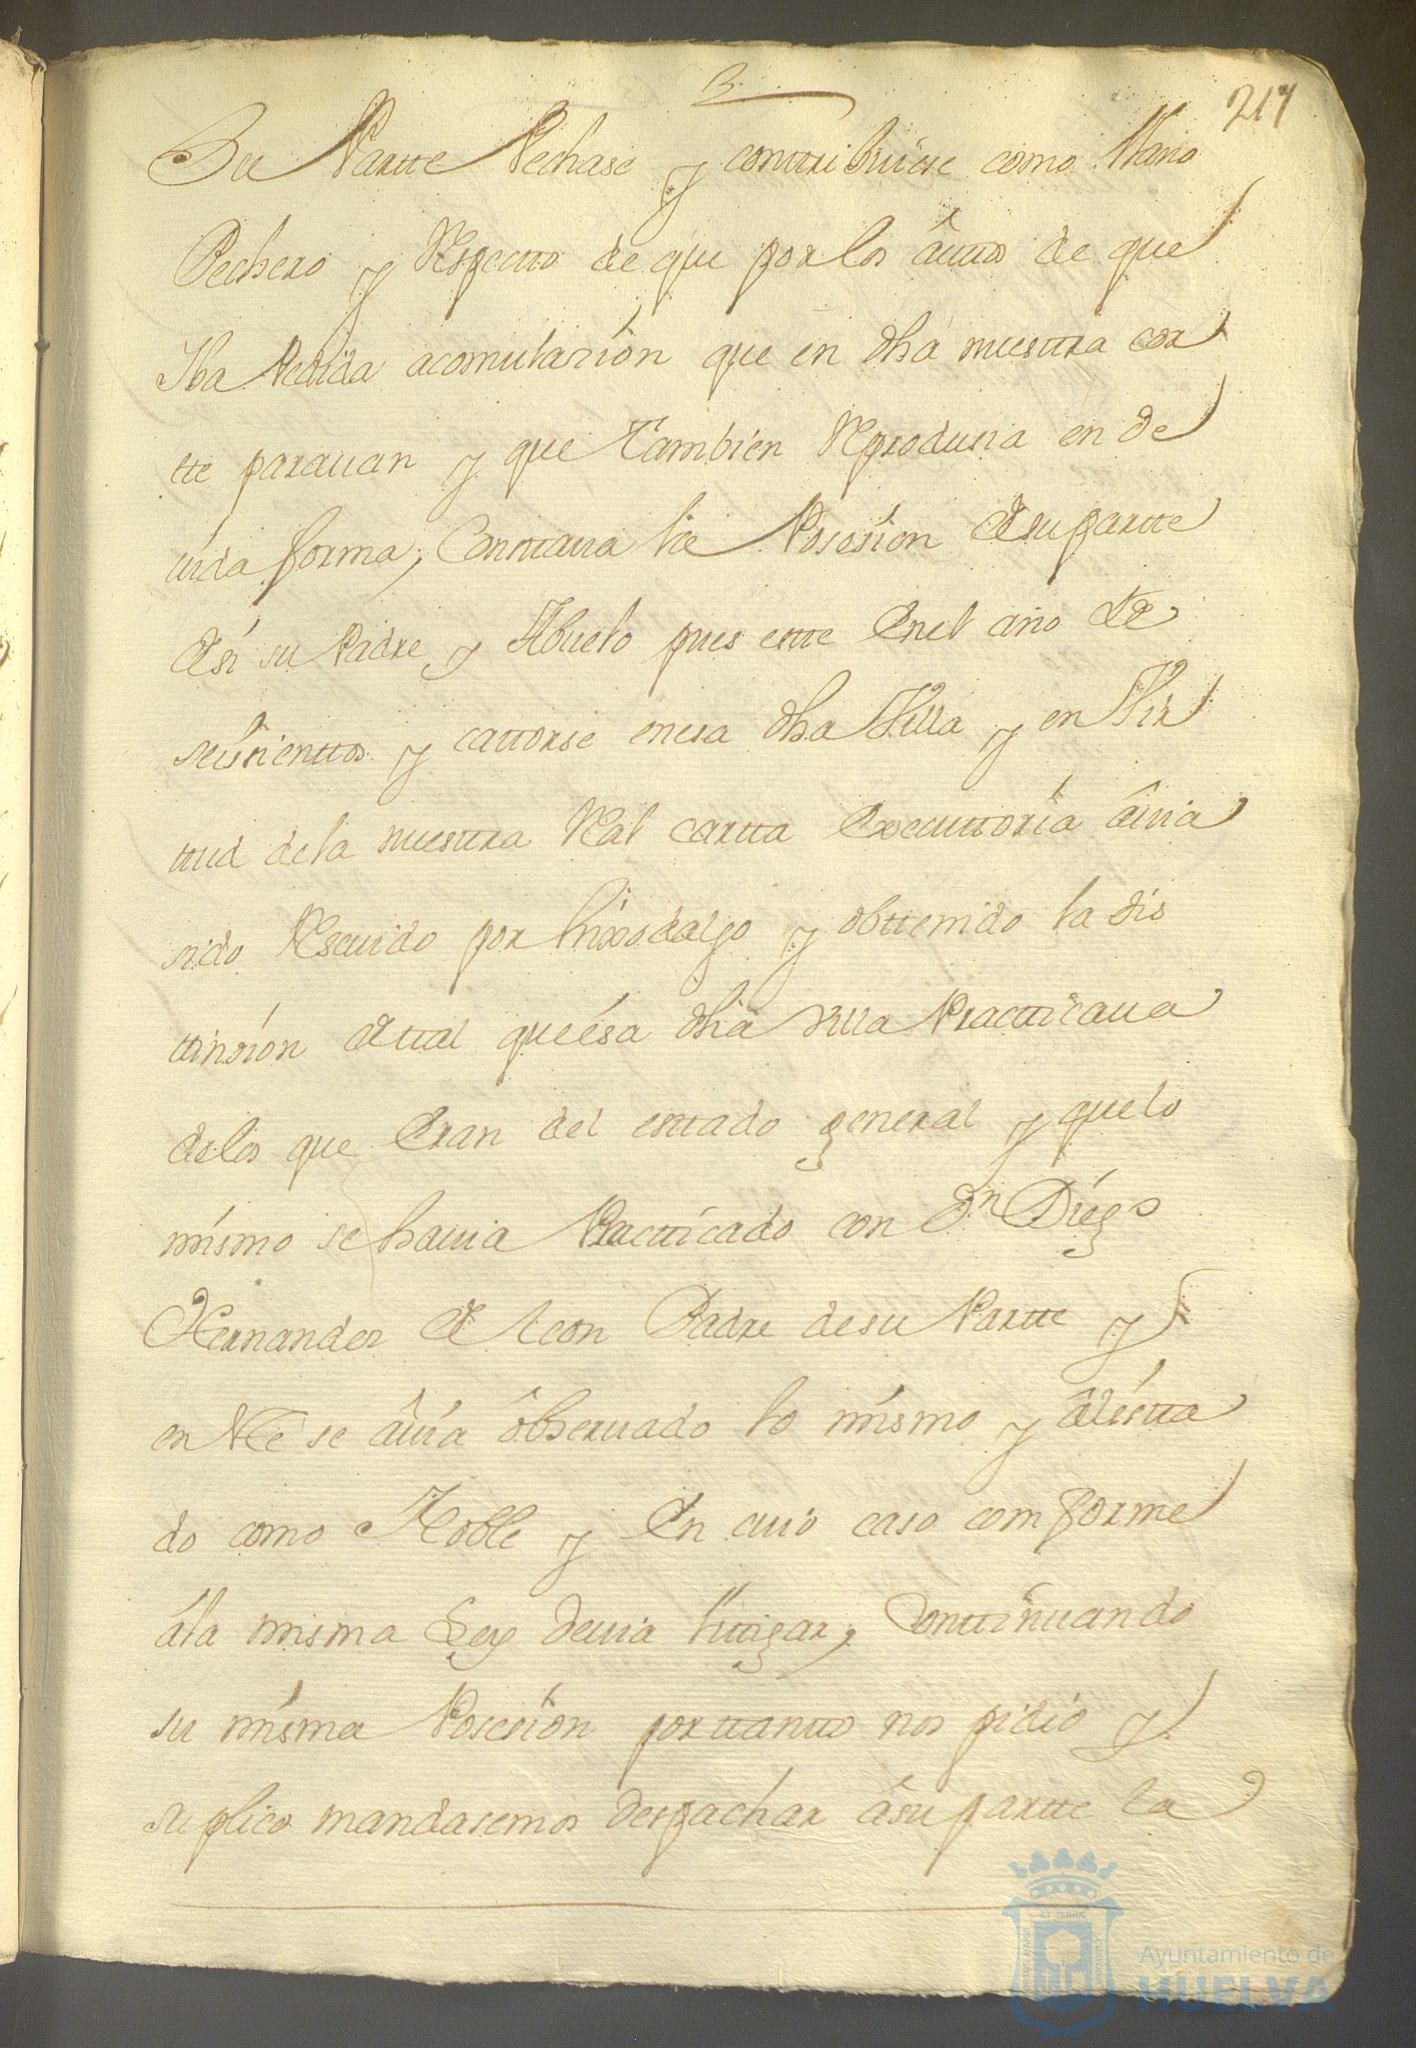 B.
217
Su Partte Pechase y conttribuiese como Llano
Pechero y Respectto de que por los âuttos de que
Iba Pedida acomulazión que én dhâ nuesttra cor
tte paravan y que Tambien Reproducia én de
vida forma; Consttava la Posesíon de su partte
de sí su Padre y Abuelo pues estte en el año de
seiscienttos y cattorse en esa dha Villa y en Vir
ttud de la nuesttra Real cartta Executtoría âvia
sido Rescivido por hixodalgo y obttenido la dis
ttinsíon de ttal que ésa dhâ Villa Practticava
de los que eran del esttado general y que lo
mísmo se havia Practticado con Dn Diégo
Hernandez de Leon Padre de su Partte y
en Este se âvía ôbservado lo mísmo y âlistta
do como Noble y en cuio caso comforme
âla misma Ley devia littigar, Conttinuando
su mísma Posesíon por ttantto nos pidió y
suplico mandasemos despachar âsu partte la
Ayuntamiento de
HUELVA